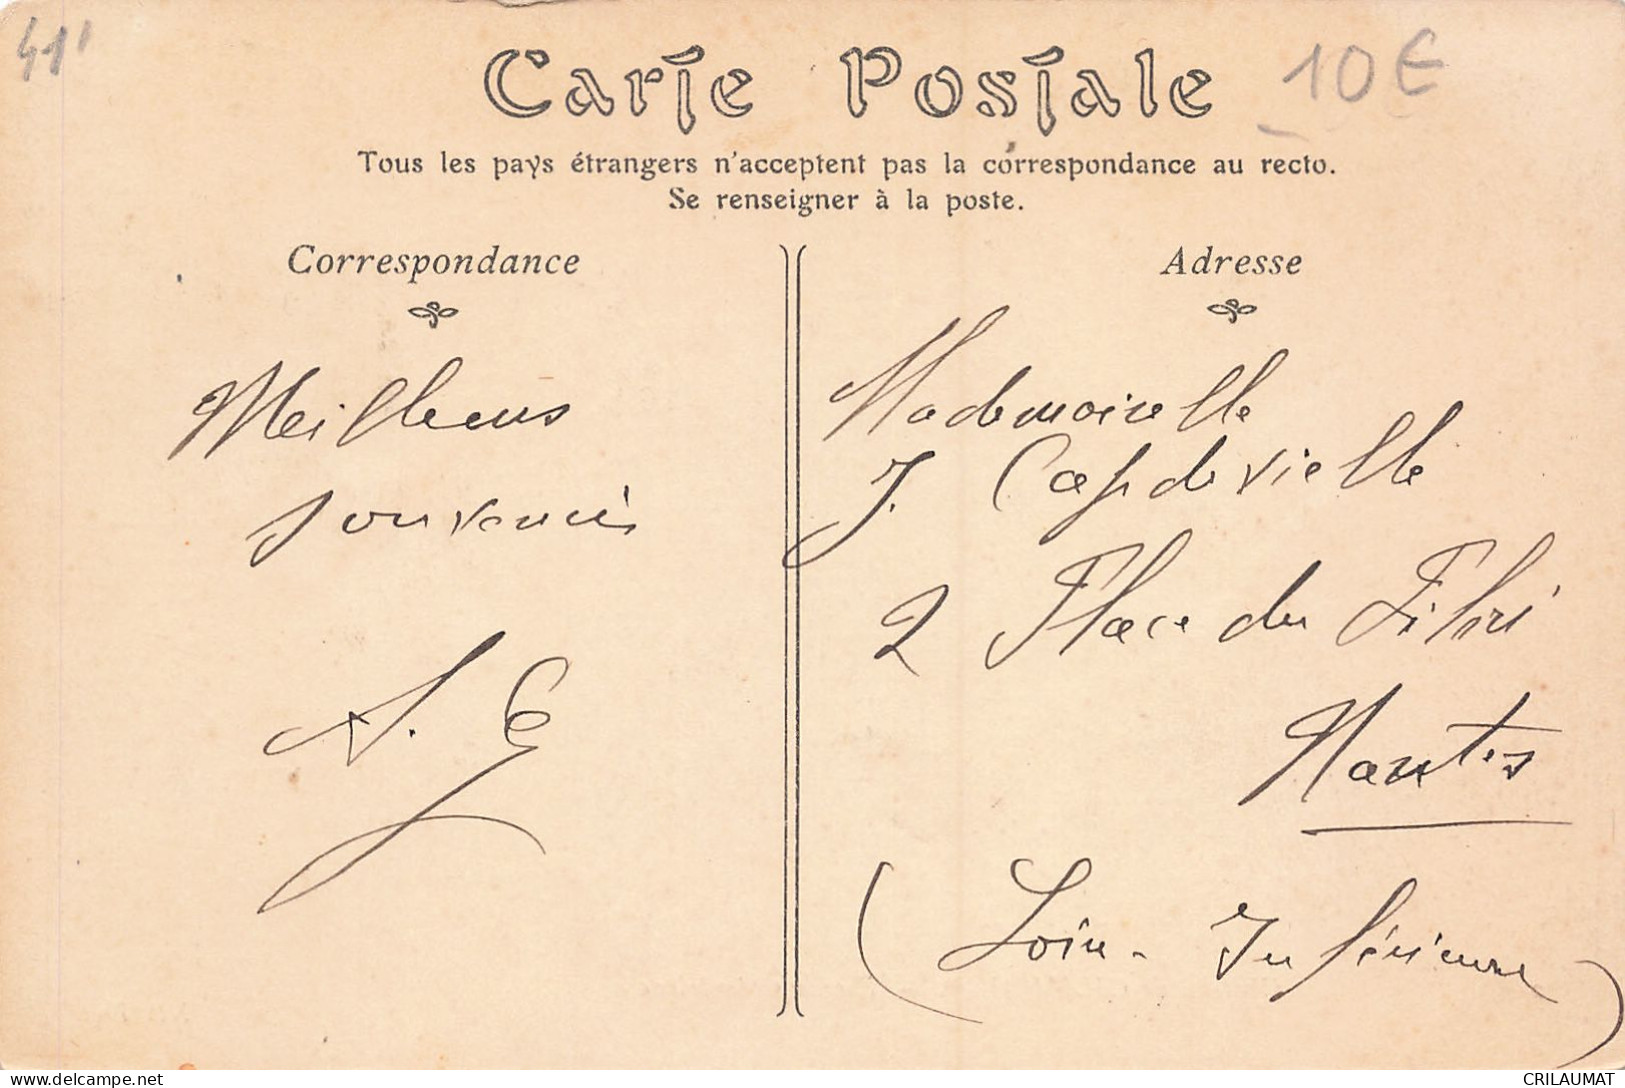 41
10€
Carte Postale
Tous les pays étrangers n'acceptent pas la correspondance au recto.
Se renseigner à la poste.
Correspondance
Meilleurs
souvenirs
Adresse
Mademoiselle
J. Capdevielle
2 Place du
Nantes
(Loire-Inférieure)
www.delcampe.net
CRILAUMAT